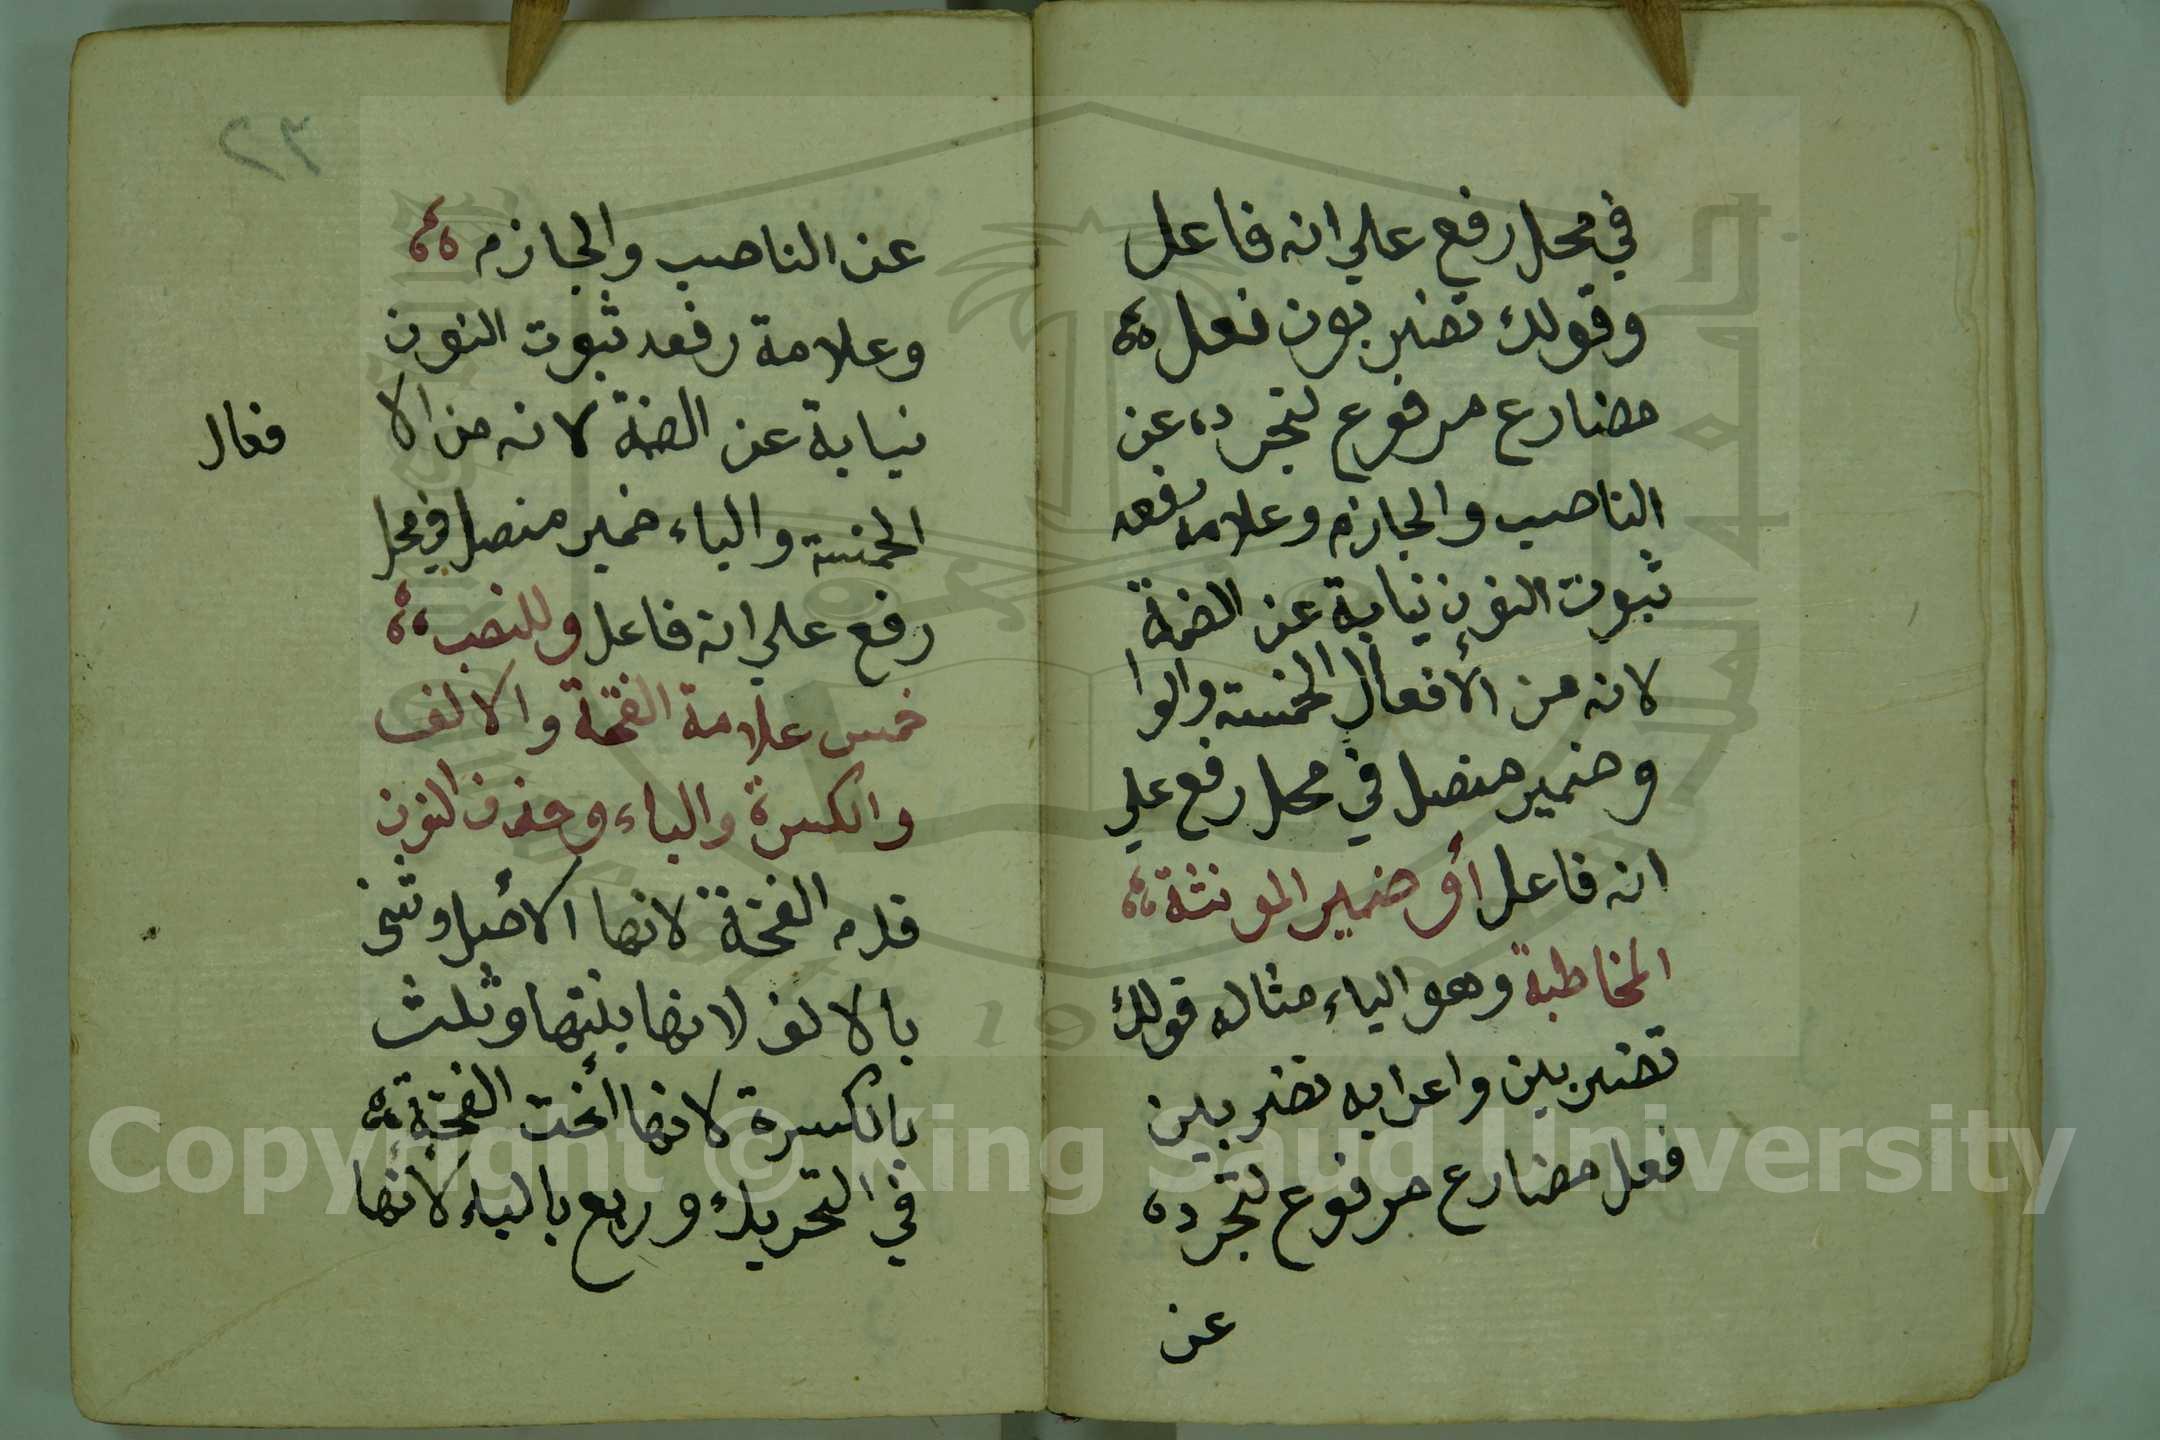 في محل رفع علي انه فاعل
وقولك تضربون فعل
مضارع مرفوع لتجرده عن
الناصب والجازم وعلامة رفعه
ثبوت النون نيابة عن الضمة
لانه من الأفعال الخمسة والوا
و ضمير متصل في محل رفع علي
انه فاعل أو ضمير المونثة
المخاطبة وهو الياء مثاله قولك
تضربين واعرابه تضربين
فعل مضارع مرفوع لتجرده
عن
٢٣
عن الناصب والجازم
وعلامة رفعه ثبوت النون
نيابة عن الضمة لانه من الا
فعال
الخمسة والياء ضمير متصل في محل
رفع علي انه فاعل وللنصب
خمس علامة الفتحة والالف
والكسرة والياء وحذف النون
قدم الفتحة لانها الأصل وثني
بالالف لانها بنتها وثلث
بالكسرة لانها أخت الفتحة
في التحريك وربع بالياء لأنها
Copyright © King Saud University